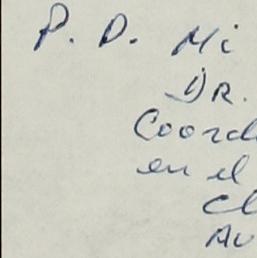 P. D. Mi
DR.
Coord
en el
Cl
Av